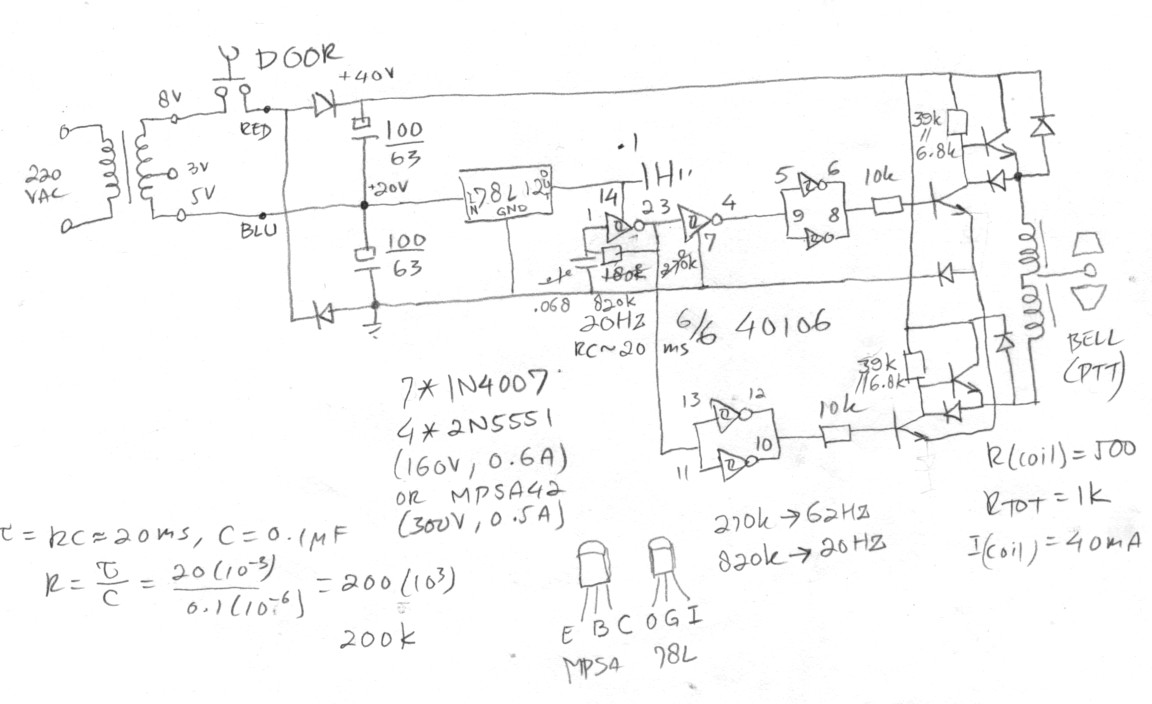 DOOR
+40V
8V
RED
100
63
220
VAC
3V
5V
+20V
BLU
IN
78L12
OUT
GND
.1
14
1
2 3
4
7
5 6
9 8
10k
39k
//
6.8k
100
63
180k
270k
.068
820k
20HZ
RC~20 ms
6/6 40106
39k
//6.8k
BELL
(PTT)
7*1N4007
4*2N5551
(160V, 0.6A)
OR MPSA42
(300V, 0.5A)
13 12
11 10
10k
R(coil)=500
RTOT=1K
I(coil)=40mA
τ=RC≈20ms, C=0.1μF
R=τ/C=20(10⁻³)/0.1(10⁻⁶)=200(10³)
200k
270k→62HZ
820k→20HZ
E B C O G I
MPSA 78L